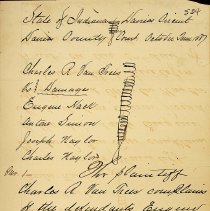 524
State of Indiana Davies Circuit
Davies County Court October Term 187
Charles A Van Trees
vs Damages
Eugene Nael
Antone Simon
Joseph Naylor
Charles Naylor
Par. 1 The plaintiff
Charles A Van Trees complains
of the defendants Eugene